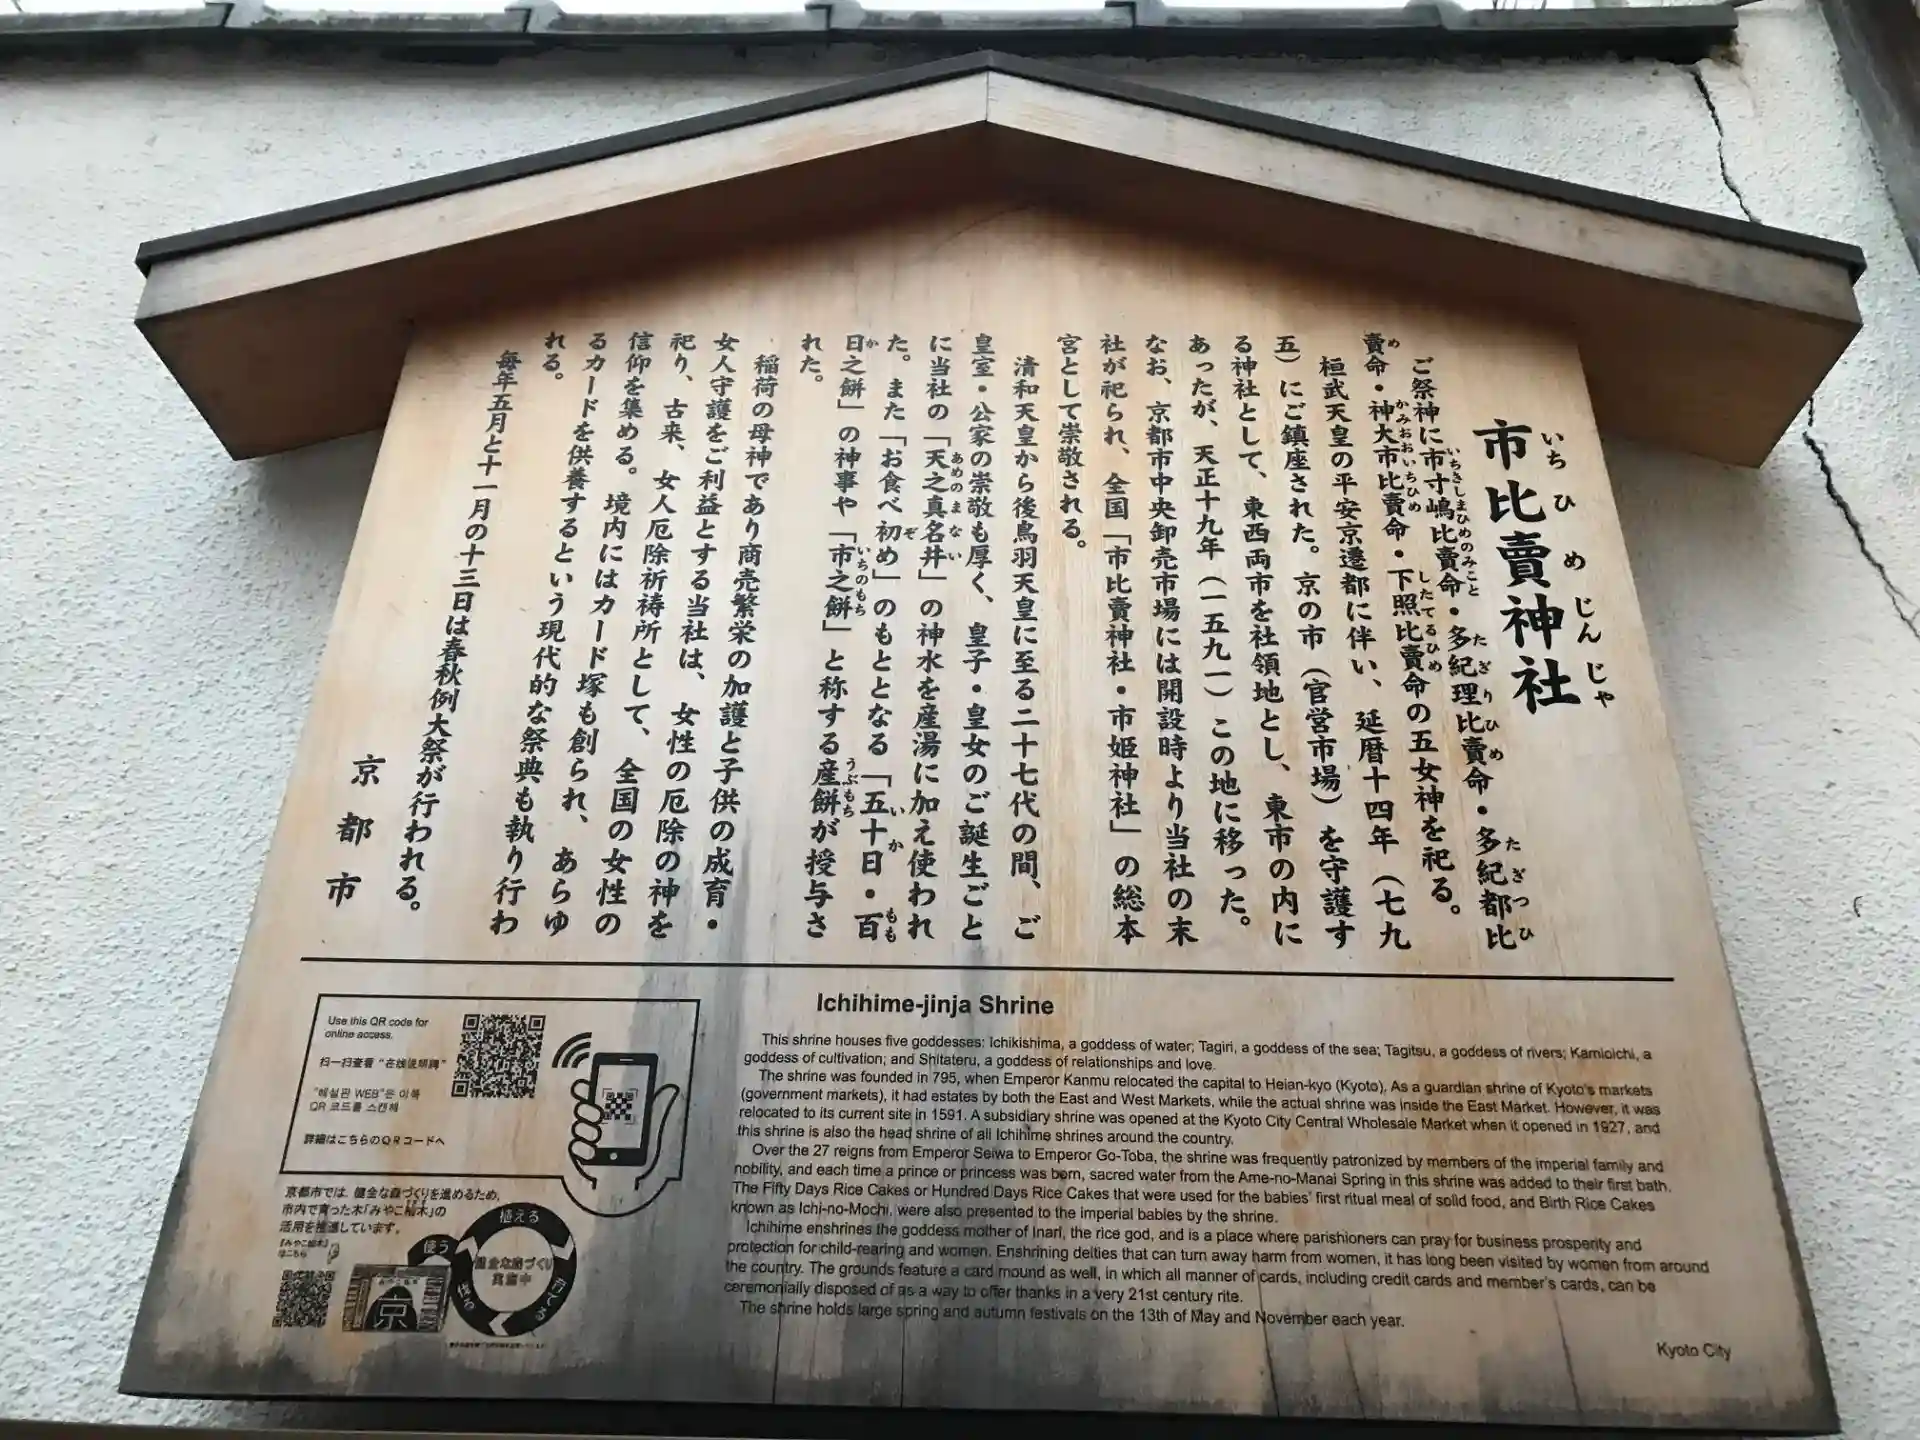 市比賣神社
いちひめじんじゃ
ご祭神に市寸嶋比賣命・多紀理比賣命・多紀都比
賣命・神大市比賣命・下照比賣命の五女神を祀る。
桓武天皇の平安京遷都に伴い、延暦十四年（七九
五）にご鎮座された。京の市（官営市場）を守護す
る神社として、東西両市を社領地とし、東市の内に
あったが、天正十九年（一五九一）この地に移った。
なお、京都市中央卸売市場には開設時より当社の末
社が祀られ、全国「市比賣神社・市姫神社」の総本
宮として崇敬される。
清和天皇から後鳥羽天皇に至る二十七代の間、ご
皇室・公家の崇敬も厚く、皇子・皇女のご誕生ごと
に当社の「天之真名井」の神水を産湯に加え使われ
た。また「お食べ初め」のもととなる「五十日・百
日之餅」の神事や「市之餅」と称する産餅が授与さ
れた。
稲荷の母神であり商売繁栄の加護と子供の成育・
女人守護をご利益とする当社は、女性の厄除の神を
祀り、古来、女人厄除祈祷所として、全国の女性の
信仰を集める。境内にはカード塚も創られ、あらゆ
るカードを供養するという現代的な祭典も執り行わ
れる。
毎年五月と十一月の十三日は春秋例大祭が行われる。
京都市
Ichihime-jinja Shrine
This shrine houses five goddesses: Ichikishima, a goddess of water; Tagiri, a goddess of the sea; Tagitsu, a goddess of rivers; Kamioichi, a
goddess of cultivation; and Shitateru, a goddess of relationships and love.
The shrine was founded in 795, when Emperor Kanmu relocated the capital to Heian-kyo (Kyoto). As a guardian shrine of Kyoto's markets
(government markets), it had estates by both the East and West Markets, while the actual shrine was inside the East Market. However, it was
relocated to its current site in 1591. A subsidiary shrine was opened at the Kyoto City Central Wholesale Market when it opened in 1927, and
this shrine is also the head shrine of all Ichihime shrines around the country.
Over the 27 reigns from Emperor Seiwa to Emperor Go-Toba, the shrine was frequently patronized by members of the imperial family and
nobility, and each time a prince or princess was born, sacred water from the Ame-no-Manai Spring in this shrine was added to their first bath.
The Fifty Days Rice Cakes or Hundred Days Rice Cakes that were used for the babies' first ritual meal of solid food, and Birth Rice Cakes
known as Ichi-no-Mochi, were also presented to the imperial babies by the shrine.
Ichihime enshrines the goddess mother of Inari, the rice god, and is a place where parishioners can pray for business prosperity and
protection for child-rearing and women. Enshrining deities that can turn away harm from women, it has long been visited by women from around
the country. The grounds feature a card mound as well, in which all manner of cards, including credit cards and member's cards, can be
ceremonially disposed of as a way to offer thanks in a very 21st century rite.
The shrine holds large spring and autumn festivals on the 13th of May and November each year.
Kyoto City
Use this QR code for
online access.
扫一扫查看"在线说明牌"
"해설판 WEB"은 이쪽
QR 코드를 스캔해
詳細はこちらのQRコードへ
京都市では、健全な森づくりを進めるため、
市内で育った木「みやこ杣木」の
活用を推進しています。
『みやこ杣木』
はこちら
植える
育てる
使う
健全な森づくり
実施中
京